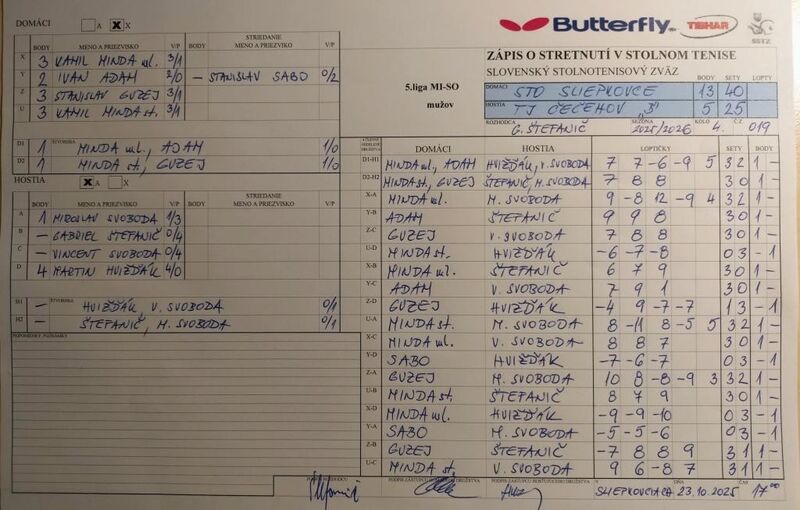 DOMÁCI A X
Butterfly TIBHAR SSTZ
BODY MENO A PRIEZVISKO V/P BODY STRIEDANIE MENO A PRIEZVISKO V/P
X 3 VAHIL MINDA ml. 3/1
Y 2 IVAN ADAM 2/0 – STANISLAV SABO 0/2
Z 3 STANISLAV GUZEJ 3/1
U 3 VAHIL MINDA st. 3/1
D1 ŠTVORHRA 1 MINDA ml., ADAM 1/0
D2 1 MINDA st., GUZEJ 1/0
HOSTIA A X
BODY MENO A PRIEZVISKO V/P BODY STRIEDANIE MENO A PRIEZVISKO V/P
A 1 MIROSLAV SVOBODA 1/3
B – GABRIEL ŠTEFANIČ 0/4
C – VINCENT SVOBODA 0/4
D 4 MARTIN HVIŽĎÁK 4/0
H1 – ŠTVORHRA HVIŽĎÁK, V. SVOBODA 0/1
H2 – ŠTEFANIČ, M. SVOBODA 0/1
PRIPOMIENKY, POZNÁMKY
5.liga MI-SO
mužov
ZÁPIS O STRETNUTÍ V STOLNOM TENISE
SLOVENSKÝ STOLNOTENISOVÝ ZVÄZ BODY SETY LOPTY
DOMÁCI STO SLIEPKOVCE 13 40
HOSTIA TJ ČEČEHOV „B" 5 25
ROZHODCA G. ŠTEFANIČ SEZÓNA 2025/2026 KOLO 4. Č.Z 019
DOMÁCI HOSTIA LOPTIČKY SETY BODY
D1-H1 MINDA ml., ADAM HVIŽĎÁK, V. SVOBODA 7 7 -6 -9 5 3 2 1 –
D2-H2 MINDA st., GUZEJ ŠTEFANIČ, M. SVOBODA 7 8 8 3 0 1 –
X-A MINDA ml. M. SVOBODA 9 -8 12 -9 4 3 2 1 –
Y-B ADAM ŠTEFANIČ 9 9 8 3 0 1 –
Z-C GUZEJ V. SVOBODA 7 8 8 3 0 1 –
U-D MINDA st. HVIŽĎÁK -6 -7 -8 0 3 – 1
X-B MINDA ml. ŠTEFANIČ 6 7 9 3 0 1 –
Y-C ADAM V. SVOBODA 7 9 1 3 0 1 –
Z-D GUZEJ HVIŽĎÁK -4 9 -7 -7 1 3 – 1
U-A MINDA st. M. SVOBODA 8 -11 8 -5 5 3 2 1 –
X-C MINDA ml. V. SVOBODA 8 8 7 3 0 1 –
Y-D SABO HVIŽĎÁK -7 -6 -7 0 3 – 1
Z-A GUZEJ M. SVOBODA 10 8 -8 -9 3 3 2 1 –
U-B MINDA st. ŠTEFANIČ 8 7 9 3 0 1 –
X-D MINDA ml. HVIŽĎÁK -9 -9 -10 0 3 – 1
Y-A SABO M. SVOBODA -5 -5 -6 0 3 – 1
Z-B GUZEJ ŠTEFANIČ -7 8 8 9 3 1 1 –
U-C MINDA st. V. SVOBODA 9 6 -8 7 3 1 1 –
PODPIS ZÁSTUPCU DOMÁCEHO DRUŽSTVA PODPIS ZÁSTUPCU HOSŤUJÚCEHO DRUŽSTVA V DŇA ČAS
23.10.2025 17⁰⁰